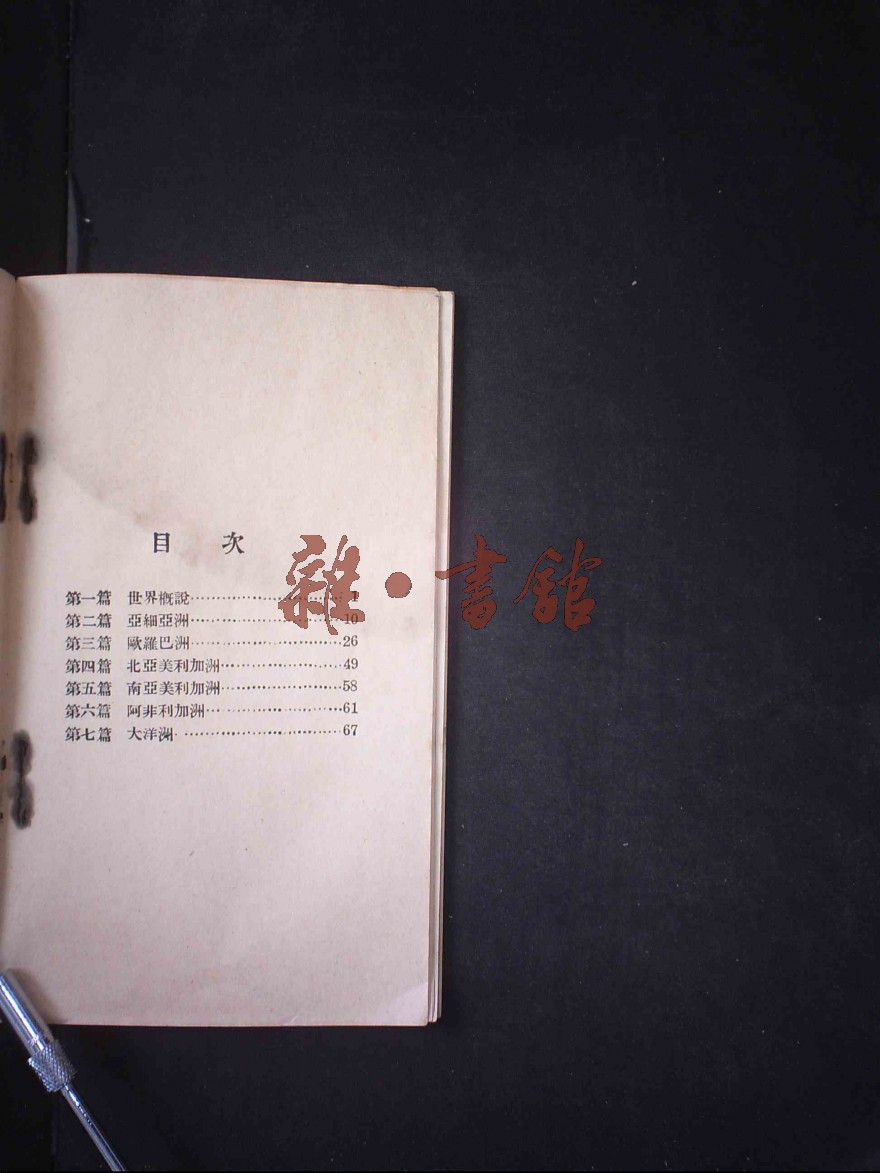 目 次
第一篇 世界概說……………………1
第二篇 亞細亞洲……………………10
第三篇 歐羅巴洲……………………26
第四篇 北亞美利加洲………………49
第五篇 南亞美利加洲………………58
第六篇 阿非利加洲…………………61
第七篇 大洋洲………………………67
雜·書館